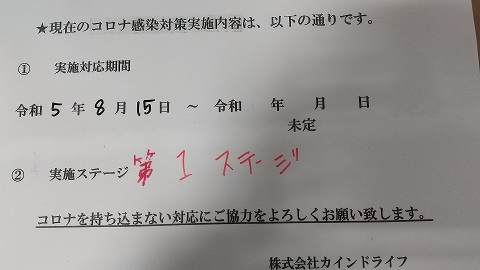 ★現在のコロナ感染対策実施内容は、以下の通りです。
① 実施対応期間
令和 5 年 8 月 15 日 ～ 令和 年 月 日
未定
② 実施ステージ 第1ステージ
コロナを持ち込まない対応にご協力をよろしくお願い致します。
株式会社カインドライフ